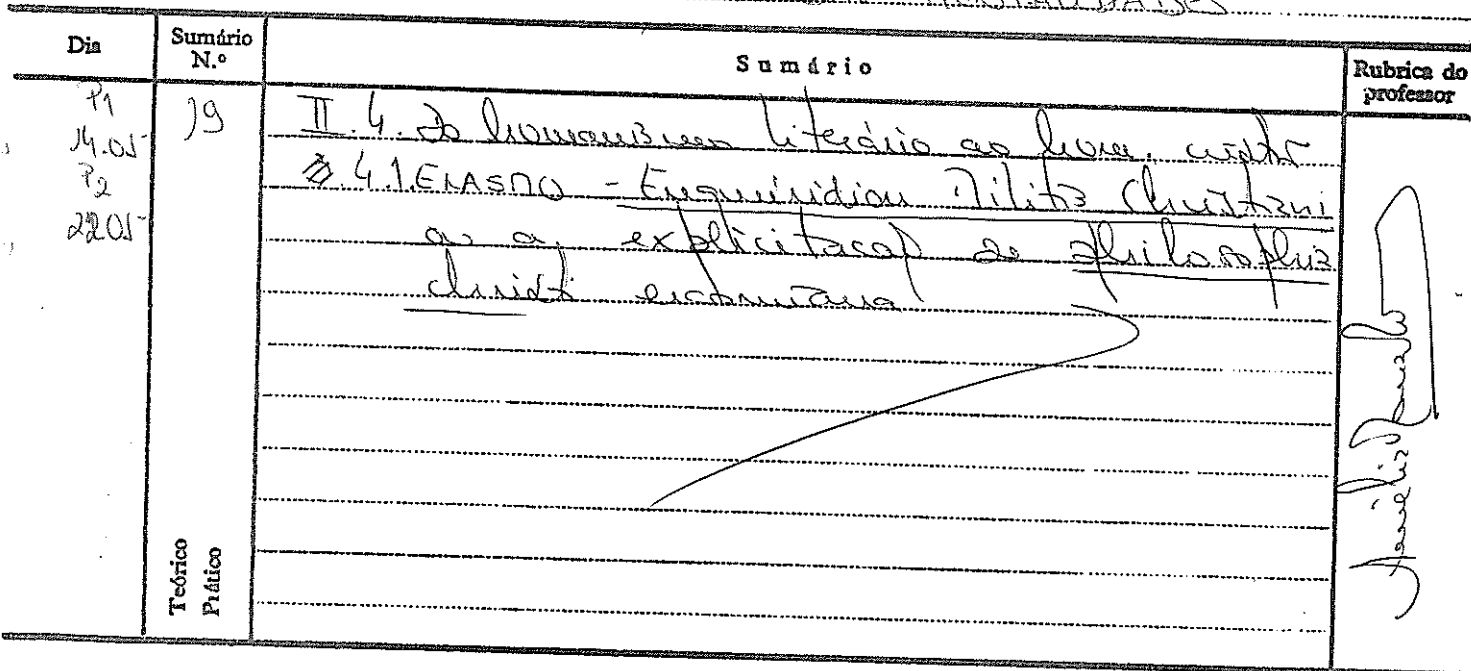 Dia
Sumário N.º
Sumário
Rubrica do professor
P1
14.05
P2
22.05
19
II.4. Do humanismo literário ao hum. cristão
4.1. ERASMO - Enquiridion Militis Christiani
ou a explicitação da philosophia
christi erasmiana
Teórico
Prático